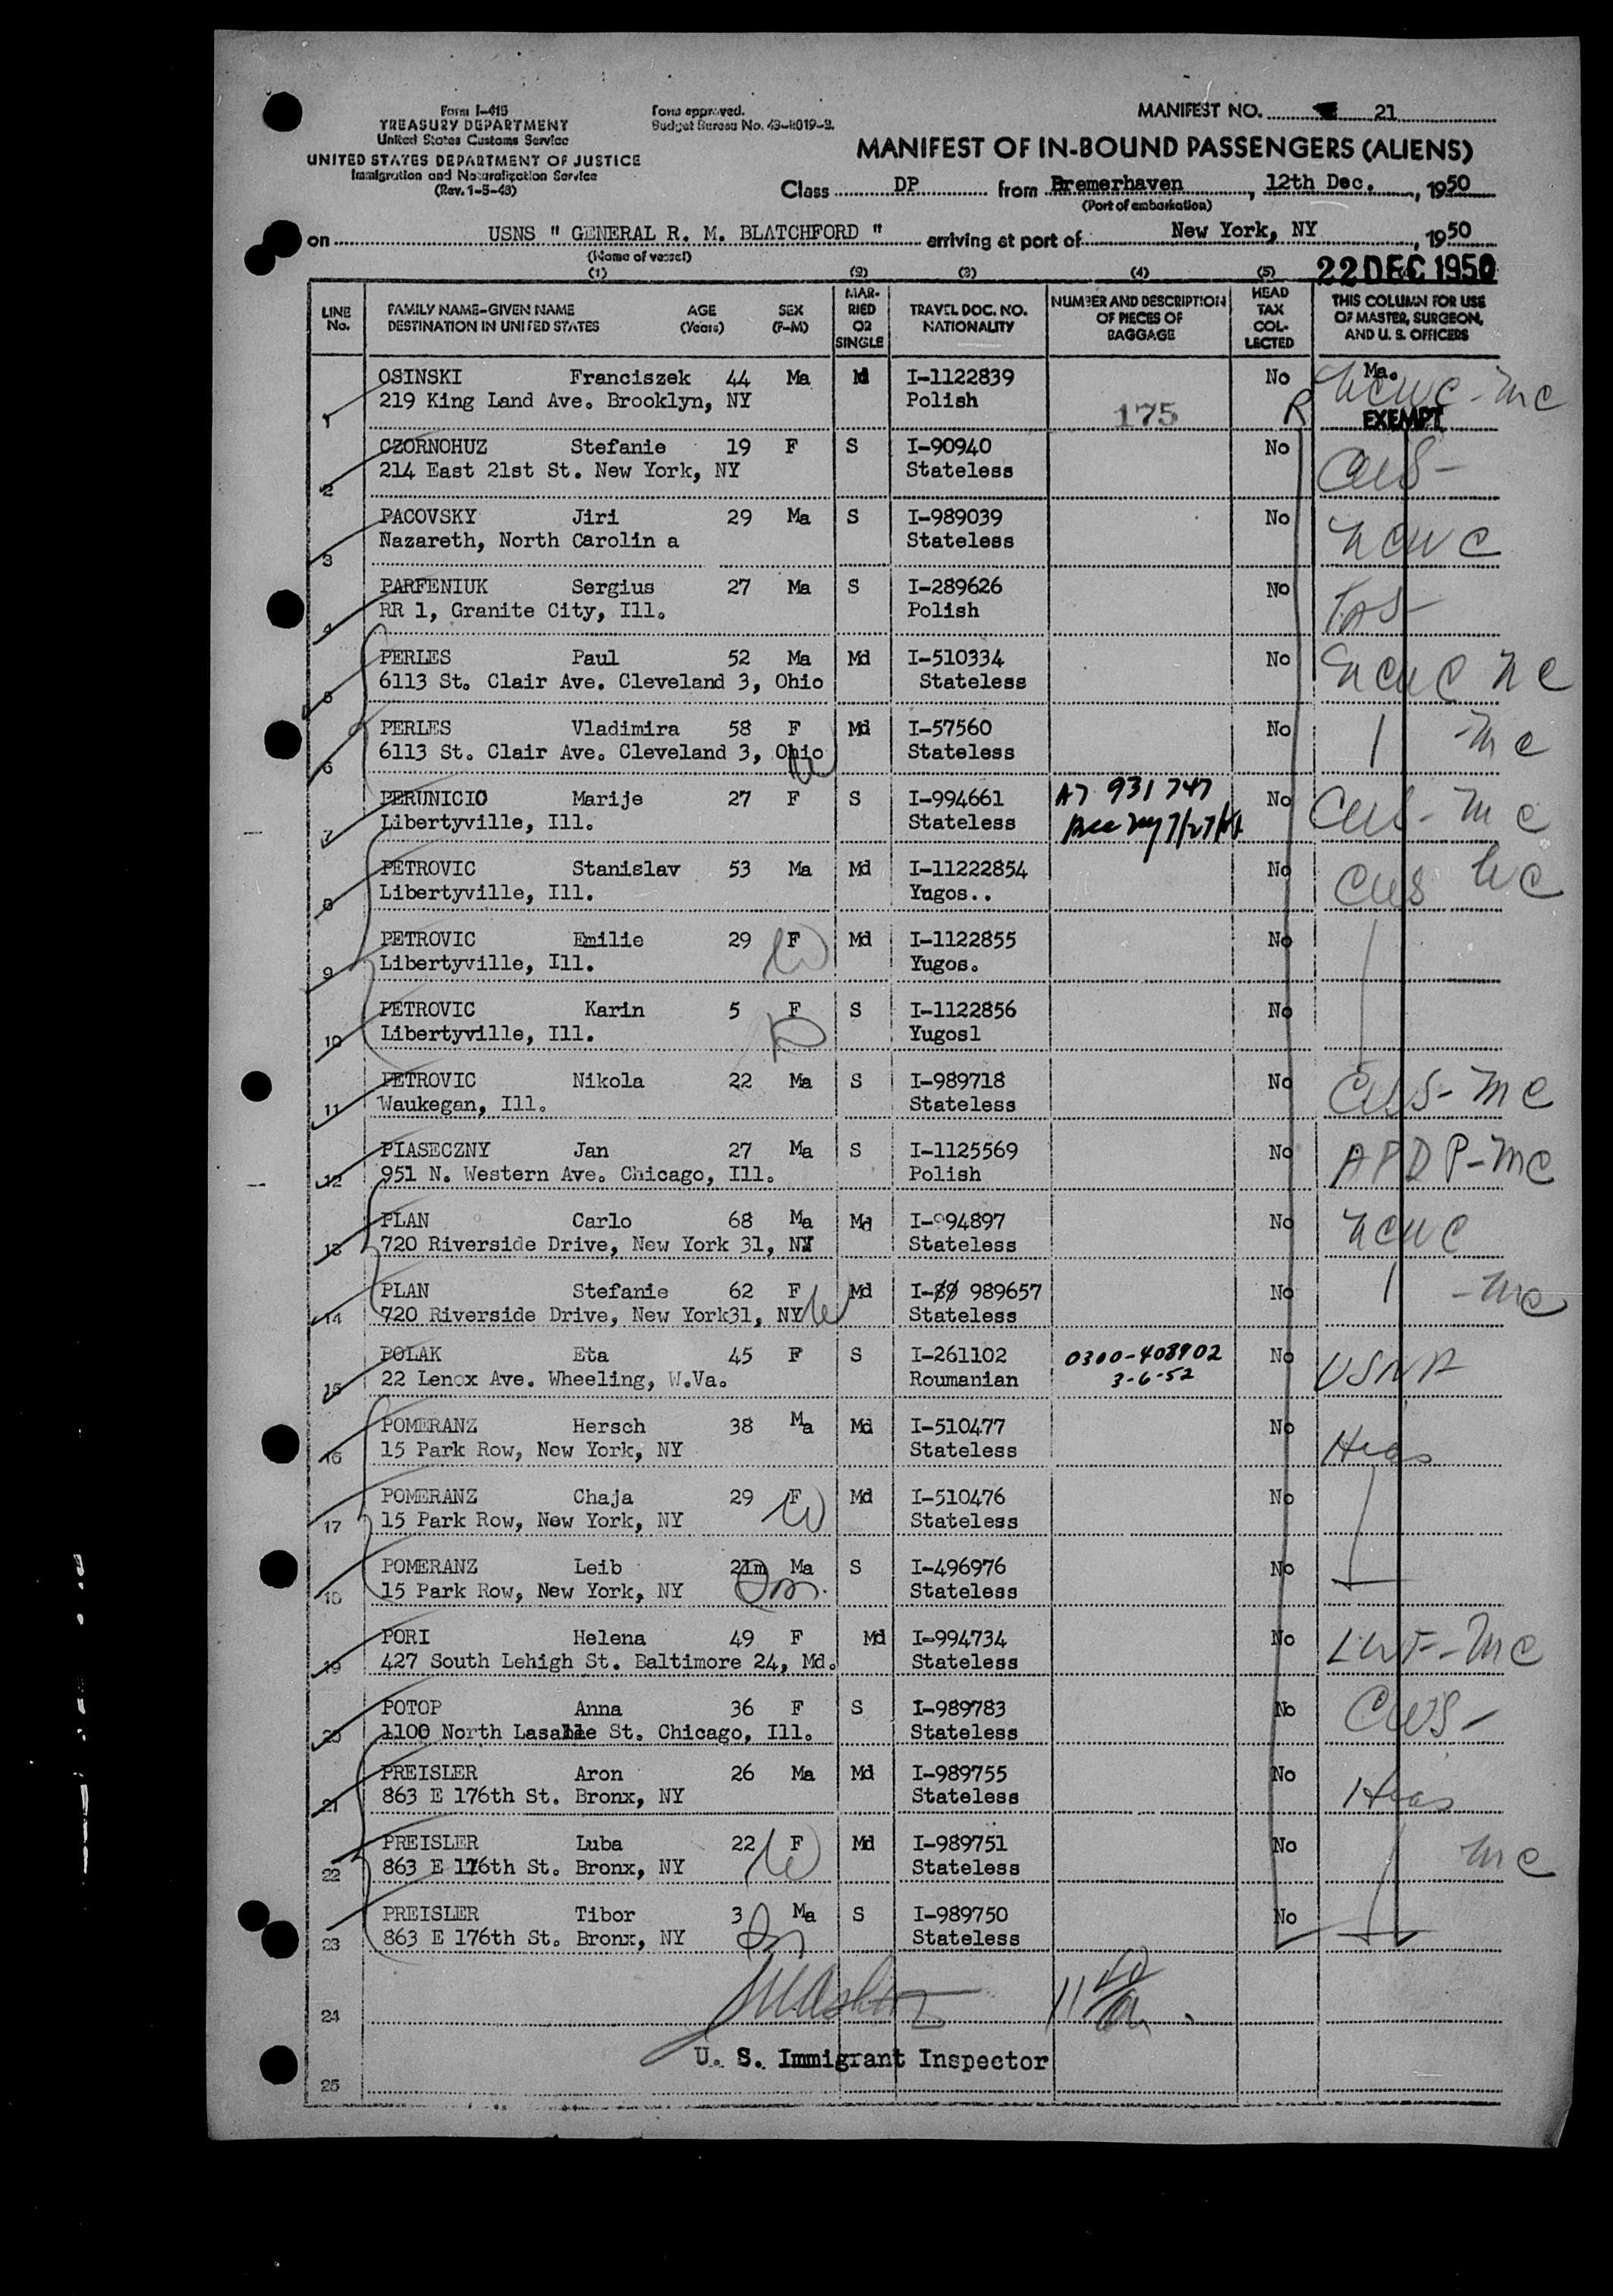 Form I-415
TREASURY DEPARTMENT
United States Customs Service
UNITED STATES DEPARTMENT OF JUSTICE
Immigration and Naturalization Service
(Rev. 1-5-48)
Form approved.
Budget Bureau No. 43-R019-3.
MANIFEST NO. 21
MANIFEST OF IN-BOUND PASSENGERS (ALIENS)
Class DP from Bremerhaven, 12th Dec., 1950
(Port of embarkation)
on USNS " GENERAL R. M. BLATCHFORD " arriving at port of New York, NY, 1950
(Name of vessel)
22 DEC 1950
(1) (2) (3) (4) (5)
LINE No. FAMILY NAME-GIVEN NAME DESTINATION IN UNITED STATES AGE (Years) SEX (F-M) MARRIED OR SINGLE TRAVEL DOC. NO. NATIONALITY NUMBER AND DESCRIPTION OF PIECES OF BAGGAGE HEAD TAX COLLECTED THIS COLUMN FOR USE OF MASTER, SURGEON, AND U. S. OFFICERS
1 OSINSKI Franciszek 44 Ma M I-1122839 No Ma. NCWC - MC
219 King Land Ave. Brooklyn, NY Polish 175 R EXEMPT
2 CZORNOHUZ Stefanie 19 F S I-90940 No CWS -
214 East 21st St. New York, NY Stateless
3 PACOVSKY Jiri 29 Ma S I-989039 No NCWC
Nazareth, North Carolin a Stateless
4 PARFENIUK Sergius 27 Ma S I-289626 No
RR 1, Granite City, Ill. Polish
5 PERLES Paul 52 Ma Md I-510334 No NCWC
6113 St. Clair Ave. Cleveland 3, Ohio Stateless
6 PERLES Vladimira 58 F Md I-57560 No - MC
6113 St. Clair Ave. Cleveland 3, Ohio Stateless
7 PERUNICIC Marije 27 F S I-994661 A7 931 747 No CWS - MC
Libertyville, Ill. Stateless
8 PETROVIC Stanislav 53 Ma Md I-11222854 No CWS
Libertyville, Ill. Yugos..
9 PETROVIC Emilie 29 F Md I-1122855 No
Libertyville, Ill. Yugos.
10 PETROVIC Karin 5 F S I-1122856 No
Libertyville, Ill. Yugosl
11 PETROVIC Nikola 22 Ma S I-989718 No CWS - MC
Waukegan, Ill. Stateless
12 PIASECZNY Jan 27 Ma S I-1125569 No APDP - MC
951 N. Western Ave. Chicago, Ill. Polish
13 PLAN Carlo 68 Ma Md I-994897 No NCWC
720 Riverside Drive, New York 31, NY Stateless
14 PLAN Stefanie 62 F Md I- 989657 No - MC
720 Riverside Drive, New York31, NY Stateless
15 POLAK Eta 45 F S I-261102 0300-408902 No USNA
22 Lenox Ave. Wheeling, W.Va. Roumanian 3-6-52
16 POMERANZ Hersch 38 Ma Md I-510477 No Hias
15 Park Row, New York, NY Stateless
17 POMERANZ Chaja 29 F Md I-510476 No
15 Park Row, New York, NY Stateless
18 POMERANZ Leib 21m Ma S I-496976 No
15 Park Row, New York, NY Stateless
19 PORI Helena 49 F Md I-994734 No LWF - MC
427 South Lehigh St. Baltimore 24, Md. Stateless
20 POTOP Anna 36 F S I-989783 No CWS -
1100 North Lasalle St. Chicago, Ill. Stateless
21 PREISLER Aron 26 Ma Md I-989755 No Hias
863 E 176th St. Bronx, NY Stateless
22 PREISLER Luba 22 F Md I-989751 No MC
863 E 176th St. Bronx, NY Stateless
23 PREISLER Tibor 3 Ma S I-989750 No
863 E 176th St. Bronx, NY Stateless
24
U. S. Immigrant Inspector
25